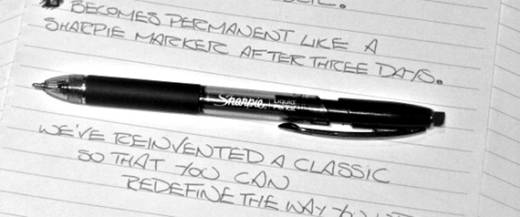 BECOMES PERMANENT LIKE A
SHARPIE MARKER AFTER THREE DAYS.
Sharpie. Liquid Pencil
WE'VE REINVENTED A CLASSIC
SO THAT YOU CAN
REDEFINE THE WAY YOU